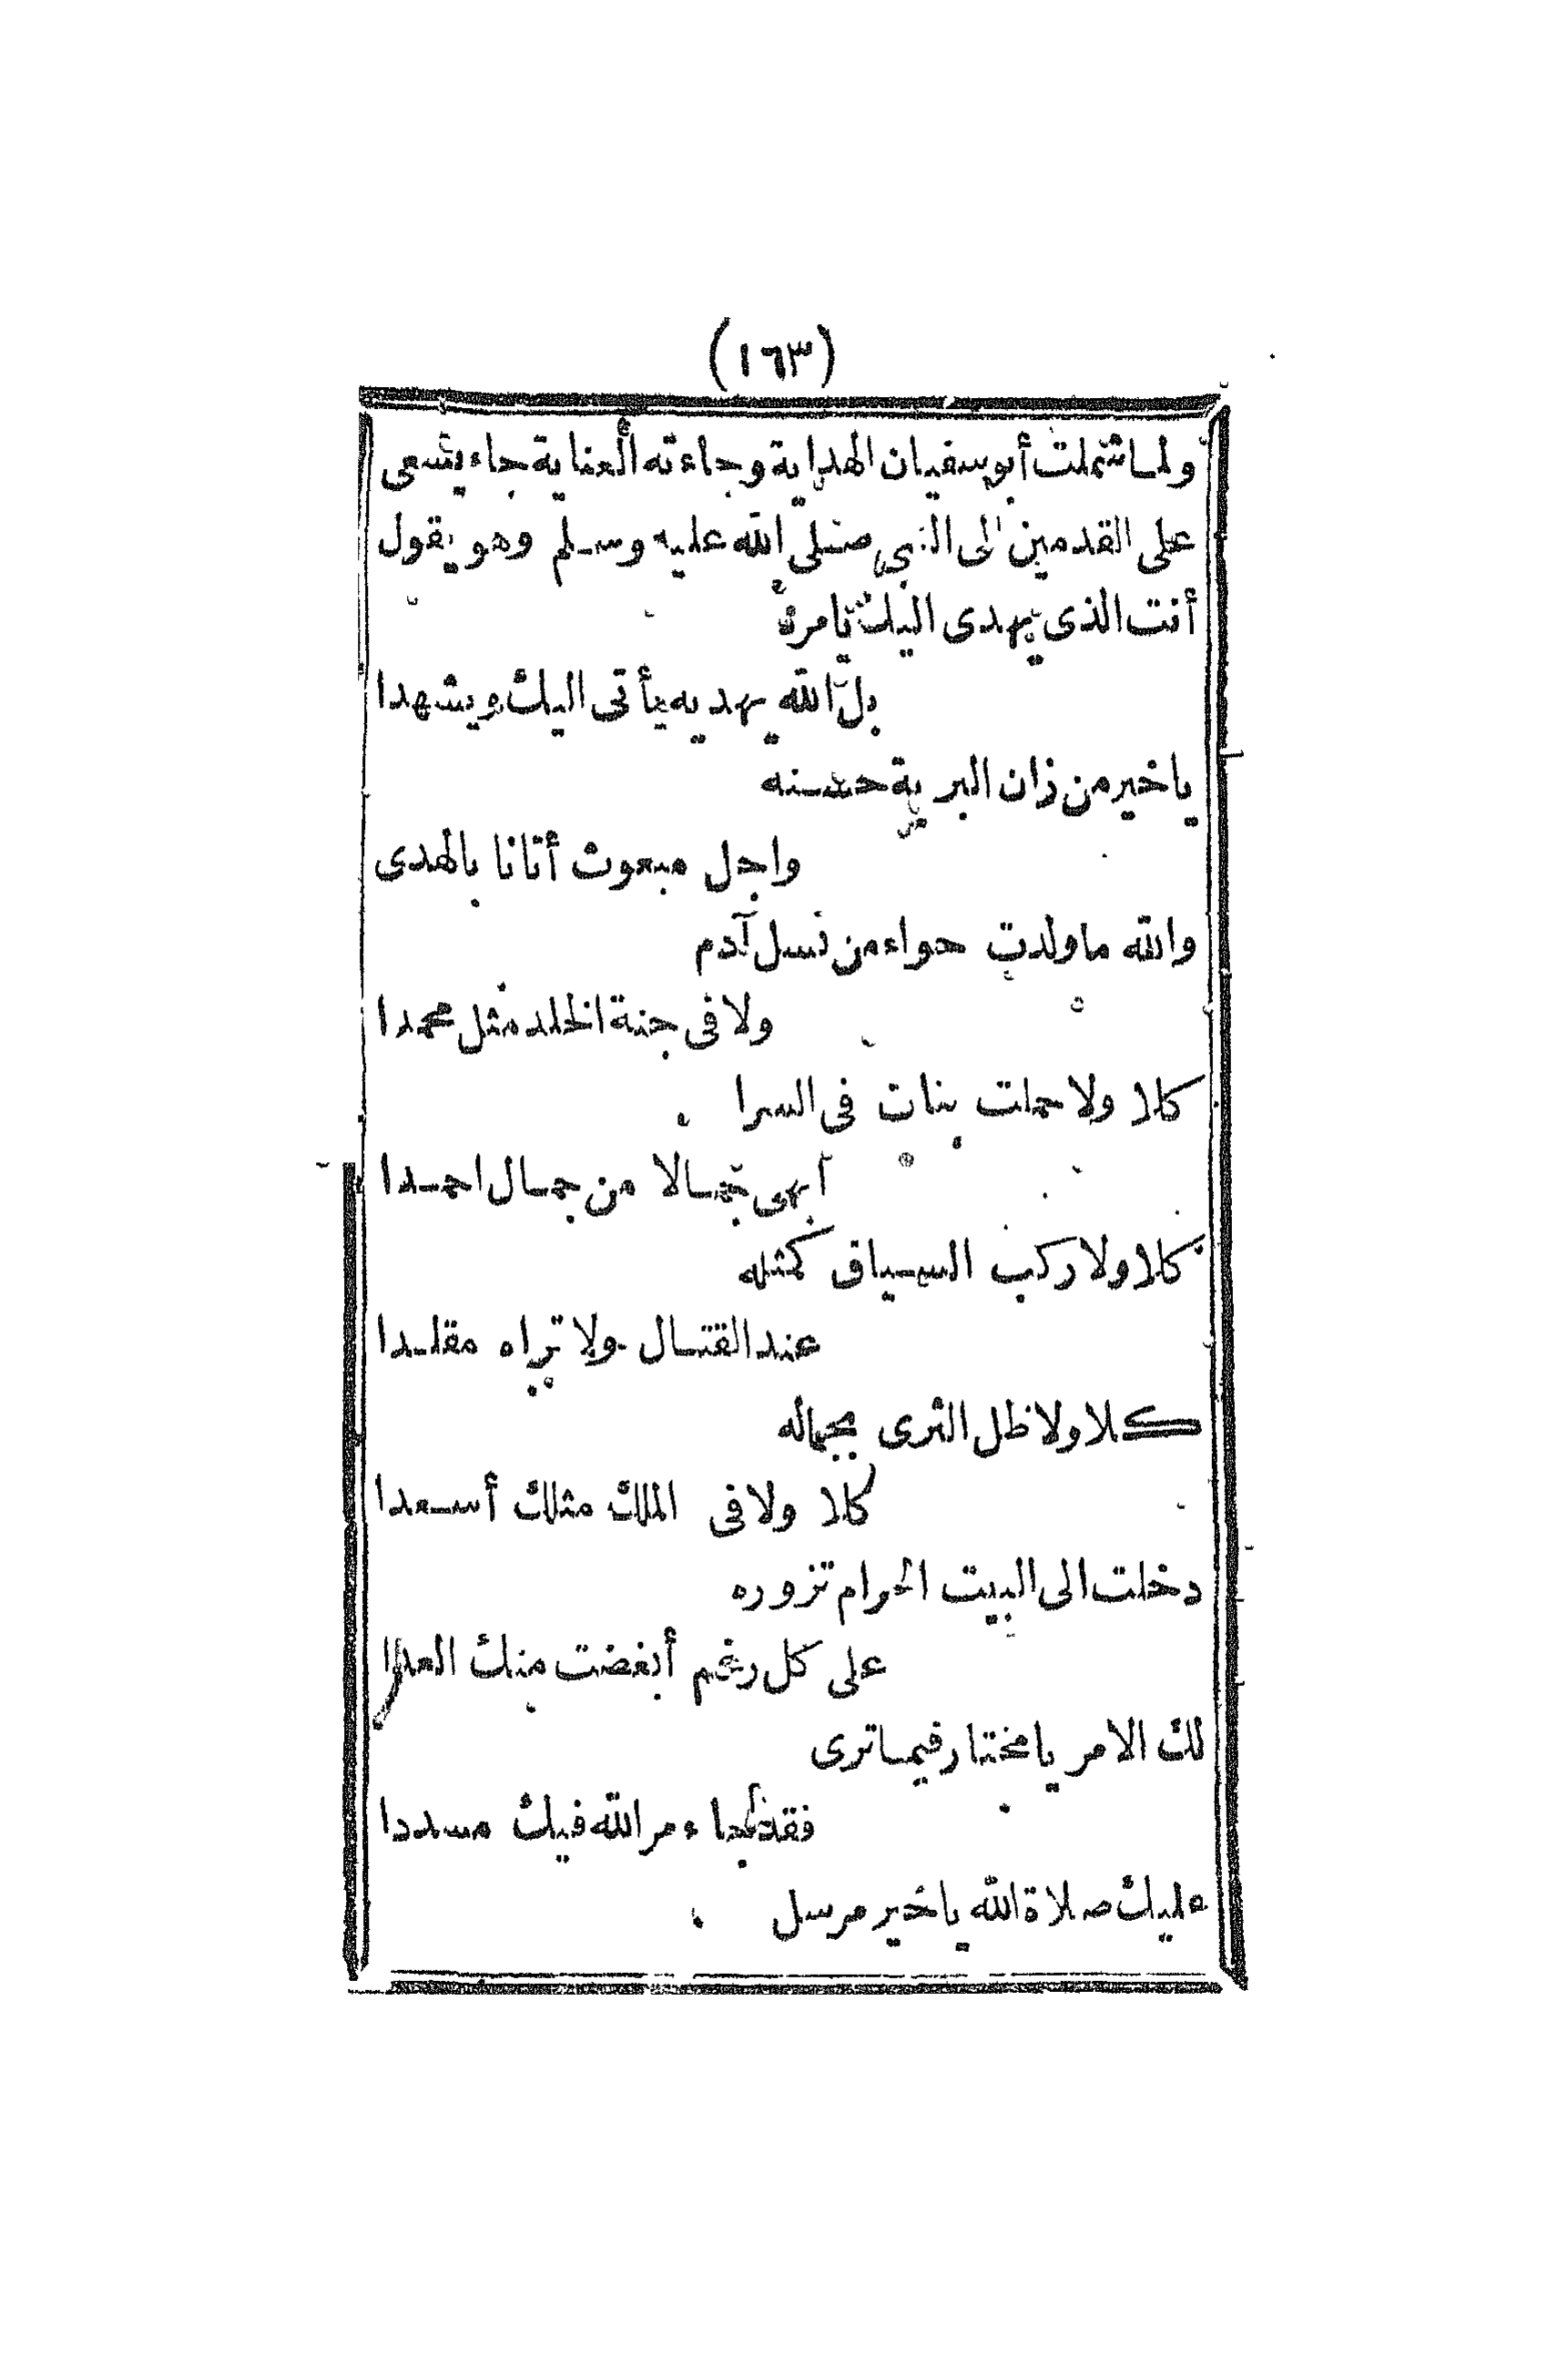 (١٦٣)
ولما شملت أبو سفيان الهداية وجاءته العناية جاء يسعى
على القدمين الى النبي صلى الله عليه وسلم وهو يقول
أنت الذى يهدى اليك بامره
بل الله يهديه يأتى اليك ويشهدا
يا خير من زان البرية حسنه
واجل مبعوث أتانا بالهدى
والله ما ولدت حواء من نسل آدم
ولا فى جنة الخلد مثل محمدا
كلا ولا حملت بنات فى السرا
أبهى جمالا من جمال احمدا
كلا ولا ركب السياق كمثله
عند القتال ولا تراه مقلدا
كلا ولا ظل الثرى بجماله
كلا ولا فى الملك مثلك أسعدا
دخلت الى البيت الحرام تزوره
على كل رغم أبغضت منك العدا
لك الامر يا مختار فيما ترى
فقد جاء مر الله فيك مسددا
عليك صلاة الله يا خير مرسل